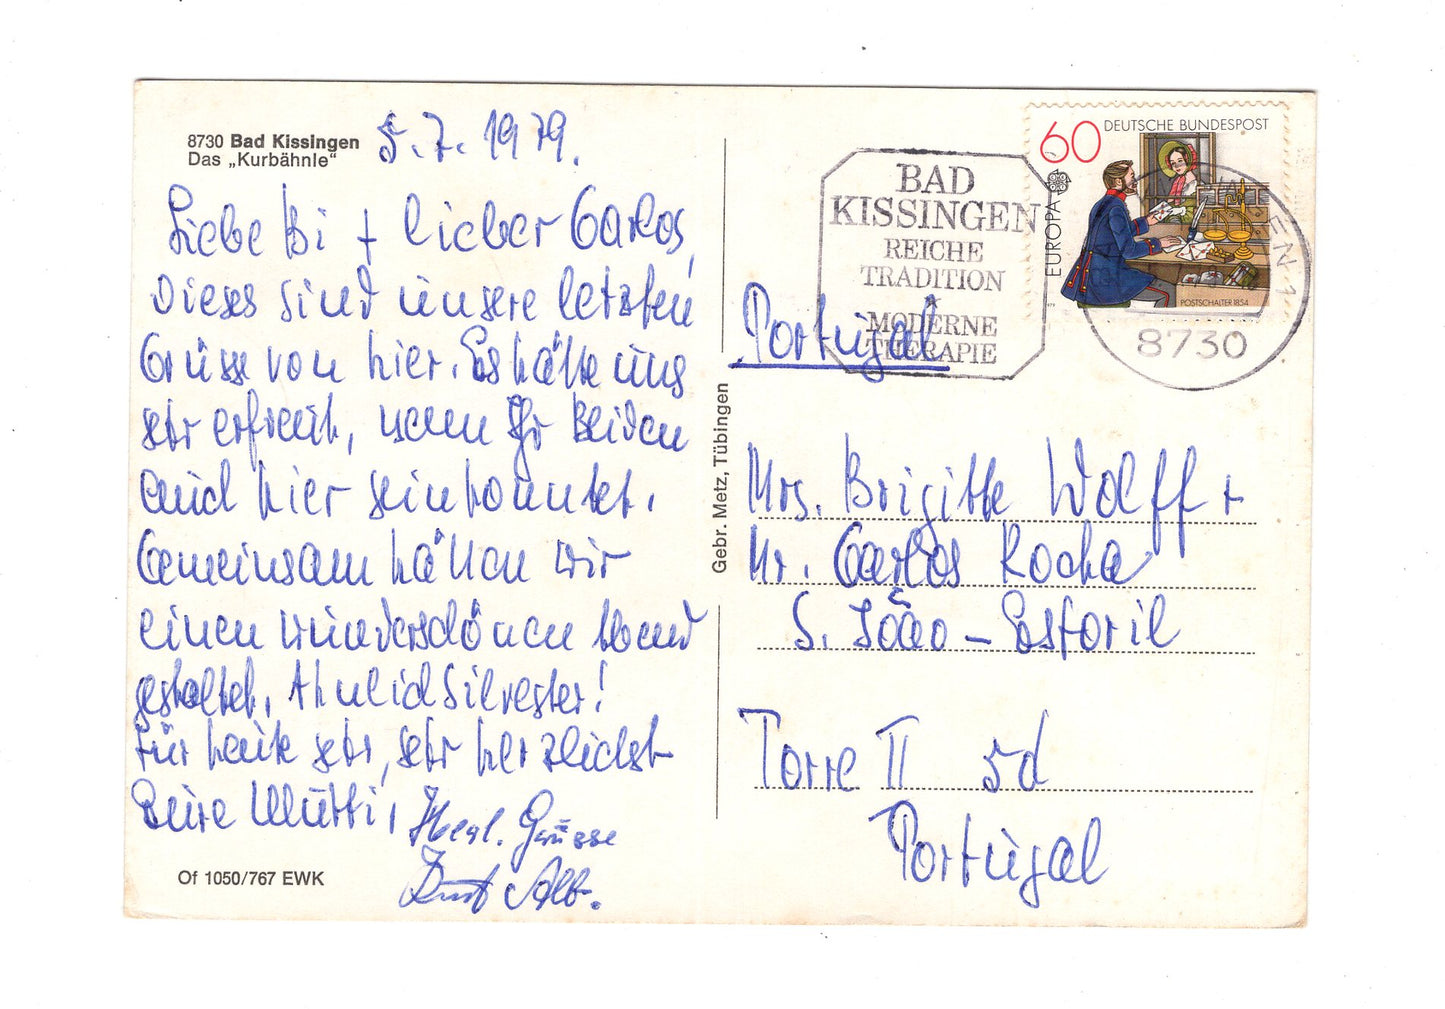 8730 Bad Kissingen
Das „Kurbähnle“
5.7.1979.
Liebe Bi + lieber Carlos,
Dieses sind unsere letzten
Grüsse von hier. Es hätte uns
sehr erfreut, wenn Ihr Beiden
auch hier sein konntet.
Gemeinsam hätten wir
einen wunderschönen Abend
gestaltet. Ähnlich Silvester!
Für heute sehr, sehr herzlichst
Eure Mutti,
Herzl. Grüsse
Alb.
Of 1050/767 EWK
Gebr. Metz, Tübingen
BAD
KISSINGEN
REICHE
TRADITION
MODERNE
THERAPIE
60 DEUTSCHE BUNDESPOST
EUROPA
POSTSCHALTER 1854
8730
Portugal
Mrs. Brigitte Wolff +
Mr. Carlos Rocha
S. João - Estoril
Torre II 5d
Portugal